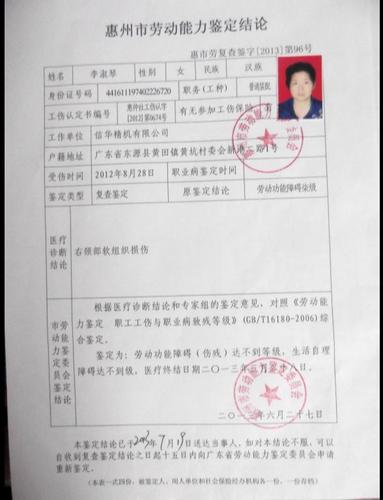 惠州市劳动能力鉴定结论
惠市劳复查鉴字[2013]第96号
姓名 李淑琴 性别 女 民族 汉族
身份证号码 441611197402226720 职务(工种) 普通装配
工伤认定书编号 惠仲社工伤认字[2012]第0674号 有无参加工伤保险 有
工作单位 信华精机有限公司
户籍地址 广东省东源县黄田镇黄坑村委会新港二路1号
受伤时间 2012年8月28日 职业病鉴定时间
鉴定类型 复查鉴定 原鉴定结论 劳动功能障碍
医疗诊断结论 右颈部软组织损伤
市劳动能力鉴定委员会鉴定结论
根据医疗诊断结论和专家组的鉴定意见，对照《劳动能
力鉴定 职工工伤与职业病致残等级》(GB/T16180-2006)综
合鉴定。
鉴定为：劳动功能障碍（伤残）达不到等级，生活自理
障碍达不到级，医疗终结日期二○一三年
二○一三年六月二十七日
本鉴定结论已于2013年7月19日送达当事人，如对本结论不服，可以
自收到复查鉴定结论之日起十五日内向广东省劳动能力鉴定委员会申请
重新鉴定。
（本表一式四份，被鉴定人、用人单位和社会保险经办机构各一份，一份存档）